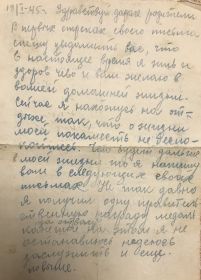 19/I-45г. Здравствуйте дорогие родители
В первых строках своего письма
спешу уведомить вас, что
в настоящее время я жив и
здоров чего и вам желаю в
вашей домашней жизни.
Сейчас я нахожусь на от-
дыхе, так, что о жизни
моей пока не беспо-
койтесь. Что будет дальше
в моей жизни то я напишу
вам в следующих своих
письмах. Не так давно
я получил одну правитель-
ственную награду медаль
за отвагу
но на этом я не
останавливаюсь надеюсь
заслужить и еще